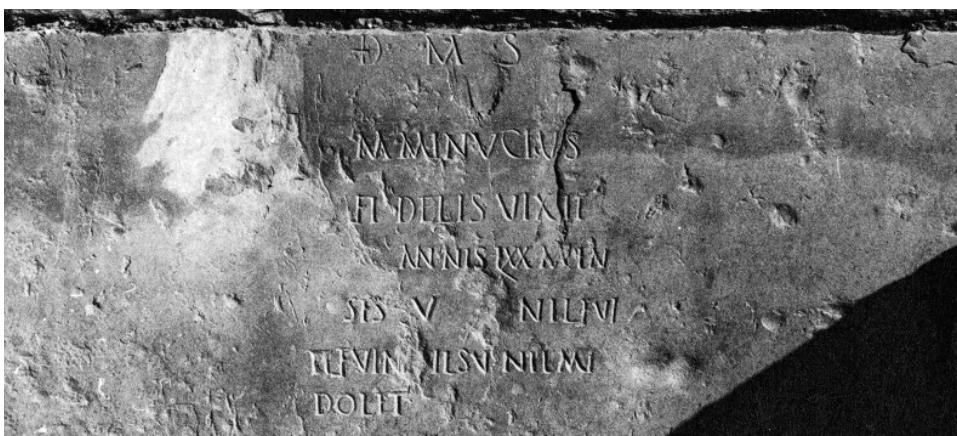 D M S
M MINVCIVS
FIDELIS VIXIT
ANNIS LXX MEN
SES V NIL FVI
ET FVI NIL SV NIL MI
DOLET